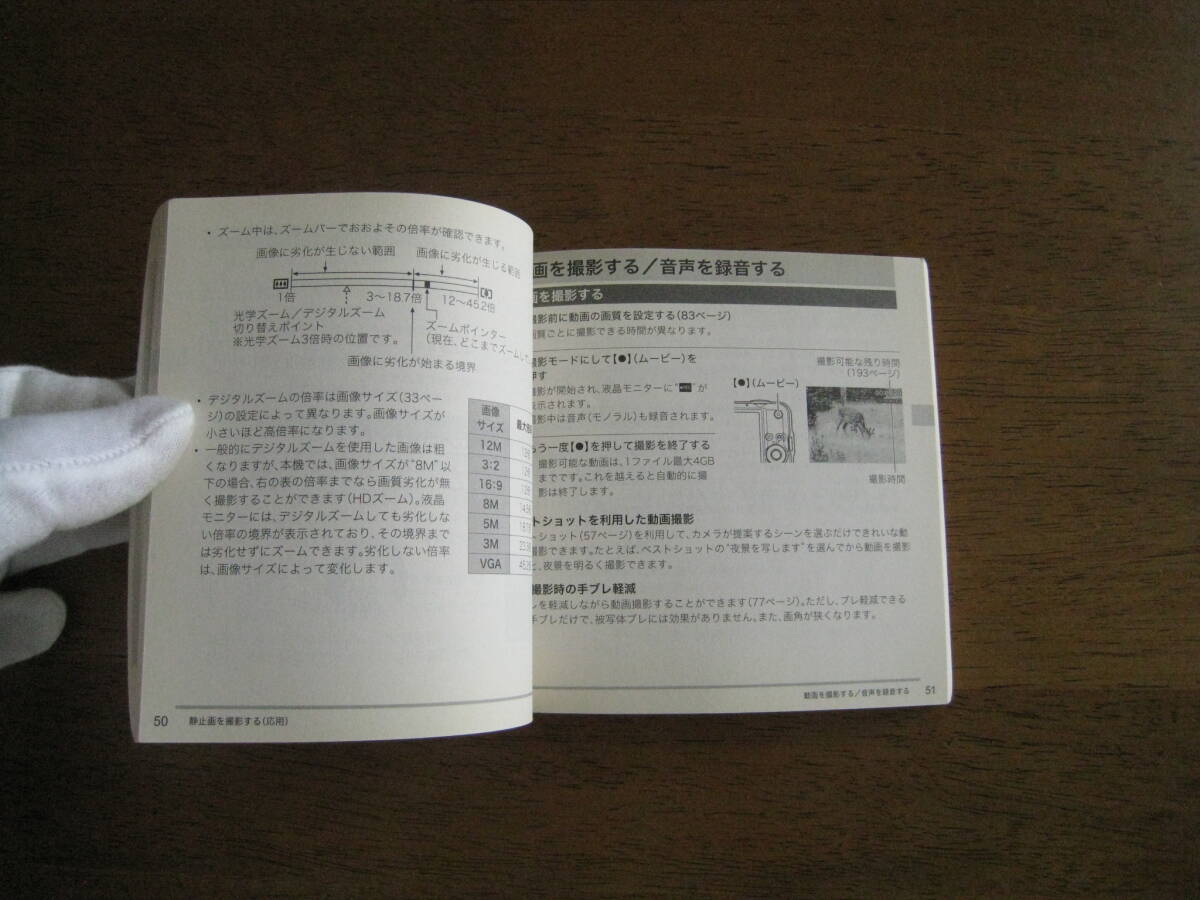 • ズーム中は、ズームバーでおおよその倍率が確認できます。
画像に劣化が生じない範囲 画像に劣化が生じる範囲
1倍 3～18.7倍 12～45.2倍
光学ズーム／デジタルズーム
切り替えポイント
※光学ズーム3倍時の位置です。
ズームポインター
（現在、どこまでズームし
画像に劣化が始まる境界
• デジタルズームの倍率は画像サイズ（33ペー
ジ）の設定によって異なります。画像サイズが
小さいほど高倍率になります。
• 一般的にデジタルズームを使用した画像は粗
くなりますが、本機では、画像サイズが“8M”以
下の場合、右の表の倍率までなら画質劣化が無
く撮影することができます（HDズーム）。液晶
モニターには、デジタルズームしても劣化しな
い倍率の境界が表示されており、その境界まで
は劣化せずにズームできます。劣化しない倍率
は、画像サイズによって変化します。
画像
サイズ 最大
12M
3:2
16:9
8M
5M
3M
VGA
50 静止画を撮影する（応用）
画を撮影する／音声を録音する
画を撮影する
影前に動画の画質を設定する（83ページ）
質ごとに撮影できる時間が異なります。
影モードにして【●】（ムービー）を
押す
影が開始され、液晶モニターに“ ”が
表示されます。
影中は音声（モノラル）も録音されます。
【●】（ムービー）
撮影可能な残り時間
（193ページ）
撮影時間
もう一度【●】を押して撮影を終了する
撮影可能な動画は、1ファイル最大4GB
までです。これを越えると自動的に撮
影は終了します。
トショットを利用した動画撮影
トショット（57ページ）を利用して、カメラが提案するシーンを選ぶだけできれいな動
撮影できます。たとえば、ベストショットの“夜景を写します”を選んでから動画を撮影
と、夜景を明るく撮影できます。
撮影時の手ブレ軽減
レを軽減しながら動画撮影することができます（77ページ）。ただし、ブレ軽減できる
手ブレだけで、被写体ブレには効果がありません。また、画角が狭くなります。
動画を撮影する／音声を録音する 51